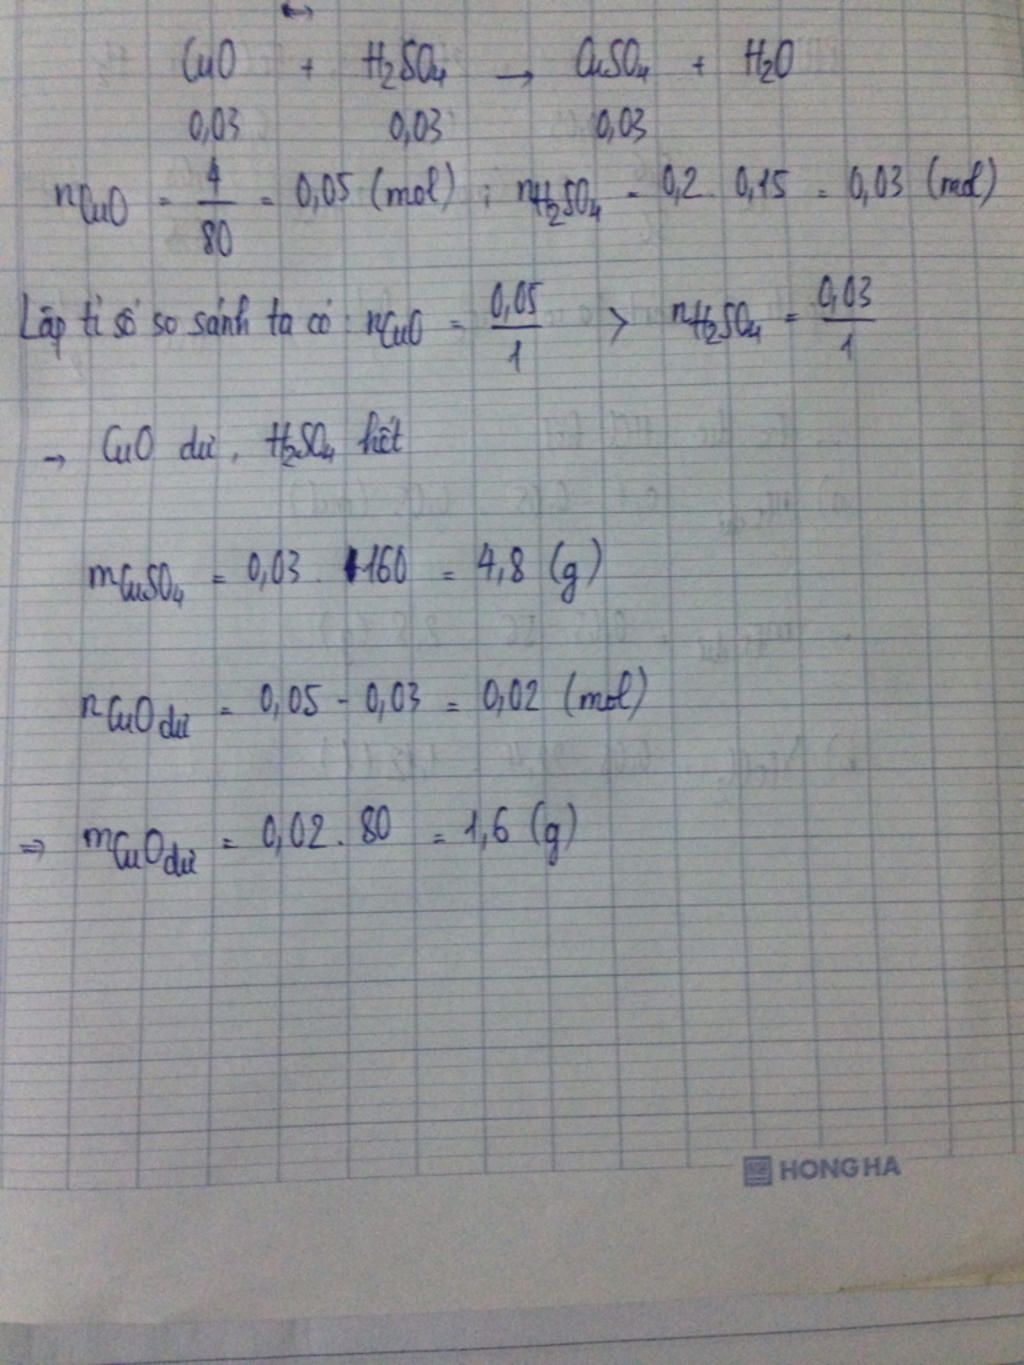 CuO + H₂SO₄ → CuSO₄ + H₂O
0,03 0,03 0,03
nCuO = 4/80 = 0,05 (mol) ; nH₂SO₄ = 0,2 . 0,15 = 0,03 (mol)
Lập tỉ số so sánh ta có : nCuO = 0,05/1 > nH₂SO₄ = 0,03/1
→ CuO dư, H₂SO₄ hết
mCuSO₄ = 0,03 . 160 = 4,8 (g)
nCuO dư = 0,05 - 0,03 = 0,02 (mol)
⇒ mCuO dư = 0,02 . 80 = 1,6 (g)
HONG HA